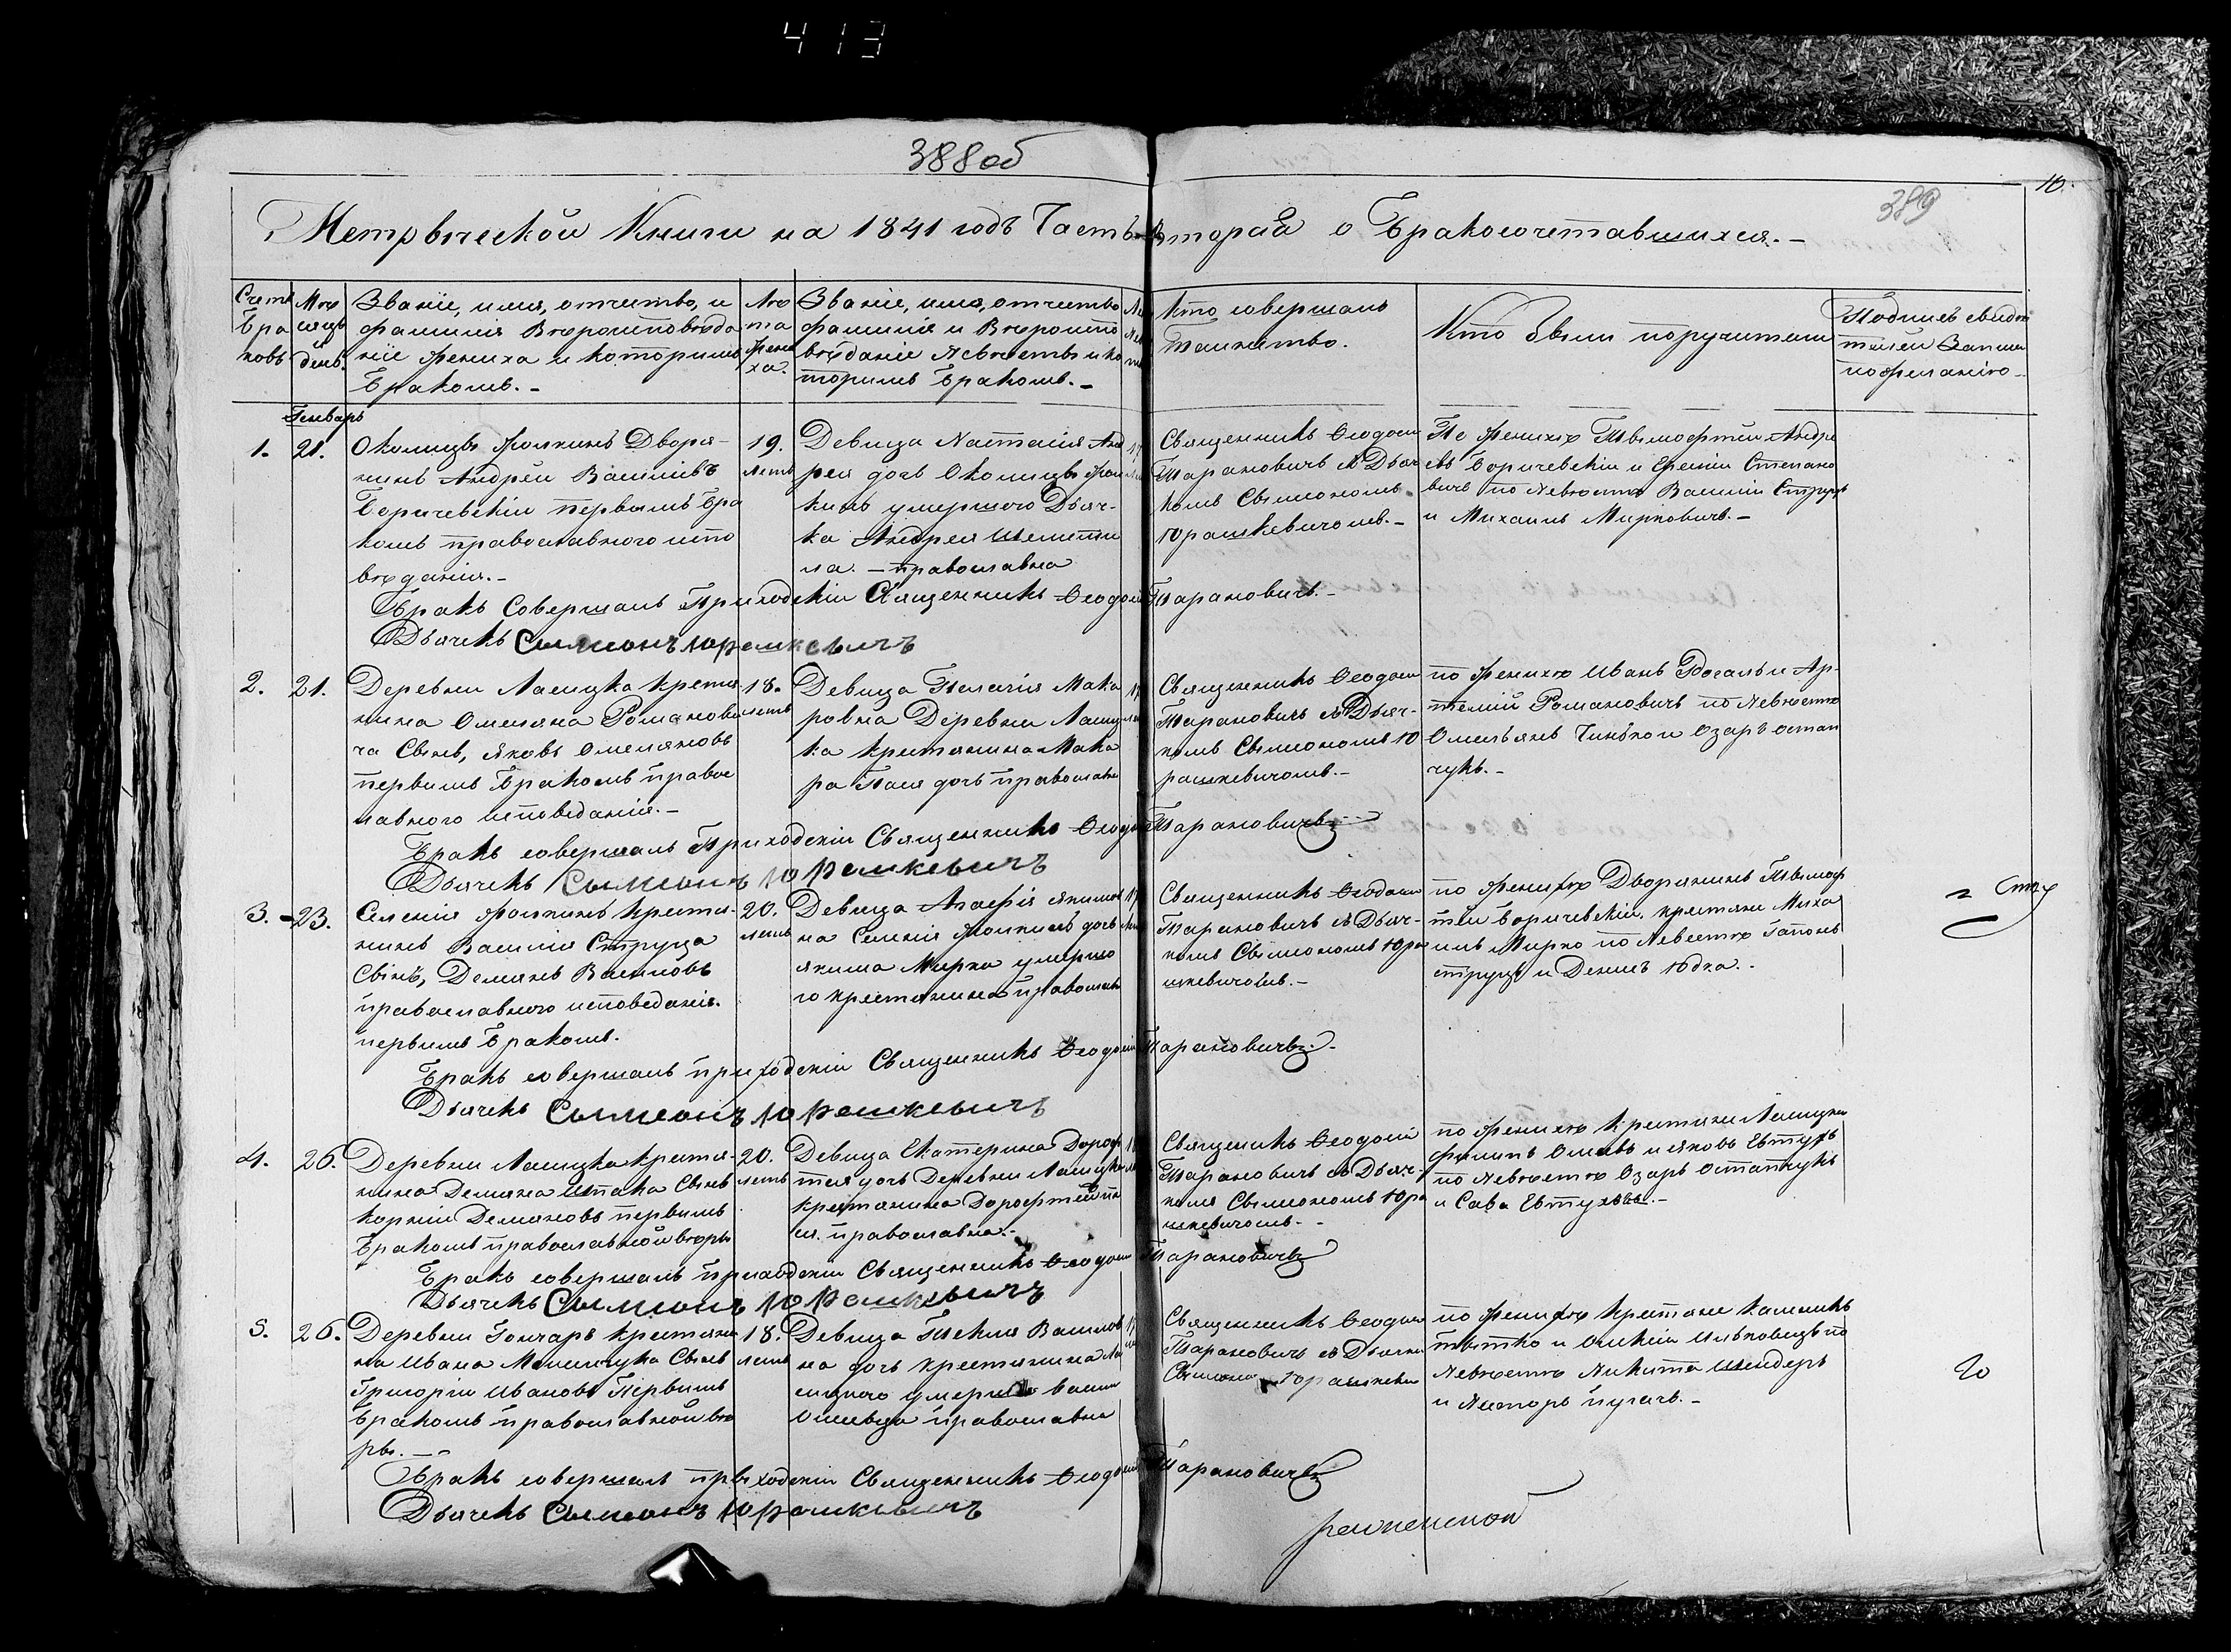 413
388 об
10.
389
Метрической Книги на 1841 годъ Часть вторая о Бракосочетавшихся.–
Счетъ Браковъ
Мѣсяцъ и день.
Званіе, имя, отчество, и
фамилія Вѣроисповѣда
ніе жениха и которимъ
Бракомъ.–
Лѣта жениха.
Званіе, имя, отчество
фамилія и Вѣроиспо
вѣданіе невѣсты и ко
торимъ Бракомъ.–
Кто совершалъ
Таинство.
Кто были поручители
Подпись свидѣ
телей Записи
по желанію
Генварь
1.
21.
Околицы Фолкинь Дворя-
нинъ Андрей Васильевъ
Боричевскій первымъ бра
комъ православного испо
вѣданія.–
19.
летъ
Девица Настасія Анд
рея дочь Околицы
кинь умершого Дьяч-
ка Андрея
– православна
Священникъ Ѳеодосій
Тарановичъ съ Дьяч
комъ Сѵмеономъ
Юрашкевичомъ.–
По женихѣ Тимофтей Андре
евъ Боричевскій и Степано
вичъ по Невѣстѣ Василій Струцъ
и Михаилъ Мирковичъ.–
Бракъ Совершалъ Приходскій Священникъ Ѳеодосій Тарановичъ.–
Дьячекъ Сымеонъ Юрашкевичъ
2.
21.
Деревни Ласицка крестя
нина Омеляна Романови
ча Сынъ, Яковъ Омеляновъ
первымъ Бракомъ правос
лавного исповеданія.–
18.
летъ
Девица Пелагія Мака
ровна Деревни Ласиц
ка крестянина Мака
ра Пася дочь православн
Священникъ Ѳеодосій
Тарановичъ съ Дьяч-
комъ Сѵмеономъ Ю
рашкевичомъ.–
по женихѣ Иванъ и Ар-
темій Романовичъ по Невѣстѣ
Омельянъ и Озаръ остап
чукъ.–
Бракъ совершалъ Приходскій Священникъ Ѳеодосій Тарановичъ
Дьячекъ Сымеонъ Юрашкевичъ
3.
23.
Селенія Фолкинь крестя-
нинъ Василія Струца
Сынъ, Демянъ Васильовъ
православного исповеданія.
первымъ Бракомъ.
20.
летъ
Девица Агафія Якимов
на Селенія Фолкинь дочь
Якима Мирка умершо
го крестянина православн
Священникъ Ѳеодосій
Тарановичъ съ Дьяч-
комъ Сѵмеономъ Юра
шкевичомъ.–
по женихѣ Дворянинъ Тимоф
тей Боричевскій, крестяне Миха
илъ Мирко по Невестѣ Гапонъ
струцъ и Денисъ Юдка.
Бракъ совершалъ приходскій Священникъ Ѳеодосій Тарановичъ.–
Дьячекъ Сымеонъ Юрашкевичъ
4.
26.
Деревни Ласицка крестя-
нина Демяна Сынъ
Корній Демяновъ первымъ
Бракомъ православной вѣры
20.
летъ
Девица Екатерина Дороф
тея дочь Деревни Ласицка
крестянина Дорофтей
православна.–
Священникъ Ѳеодосій
Тарановичъ съ Дьяч-
комъ Сѵмеономъ Юра
шкевичомъ.–
по женихѣ Крестяни Ласицка
филипъ и Яковъ Евтухъ
по Невѣстѣ Озаръ Остапчукъ
и Сава
Бракъ совершалъ приходскій Священникъ Ѳеодосій Тарановичъ
Дьячекъ Сымеонъ Юрашкевичъ
5.
26.
Деревни Гончаръ крестяни
на Ивана Сынъ
Григорій Ивановъ Первымъ
Бракомъ православной вѣ
ры.–
18.
летъ
Девица Текля Васильов
на дочь крестянина Ла
сицкого умершого Васи
православна
Священникъ Ѳеодосій
Тарановичъ съ Дьячком
Юрашкеви
по женихѣ Крестяне
и по
Невѣстѣ Никита Шендеръ
и Несторъ пугачъ.–
Бракъ совершалъ приходскій Священникъ Ѳеодосій Тарановичъ
Дьячекъ Сымеонъ Юрашкевичъ